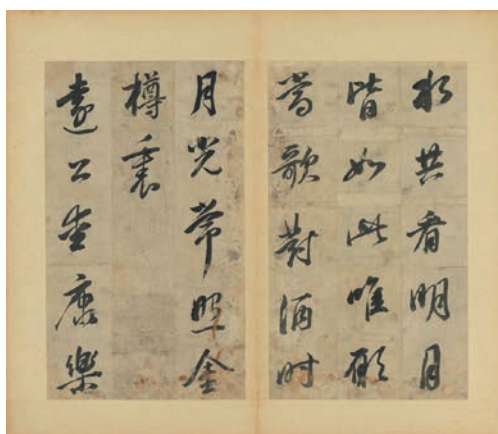 水共看明月
皆如此唯願
當歌對酒時
月光常照金
樽裏
遠公愛康樂